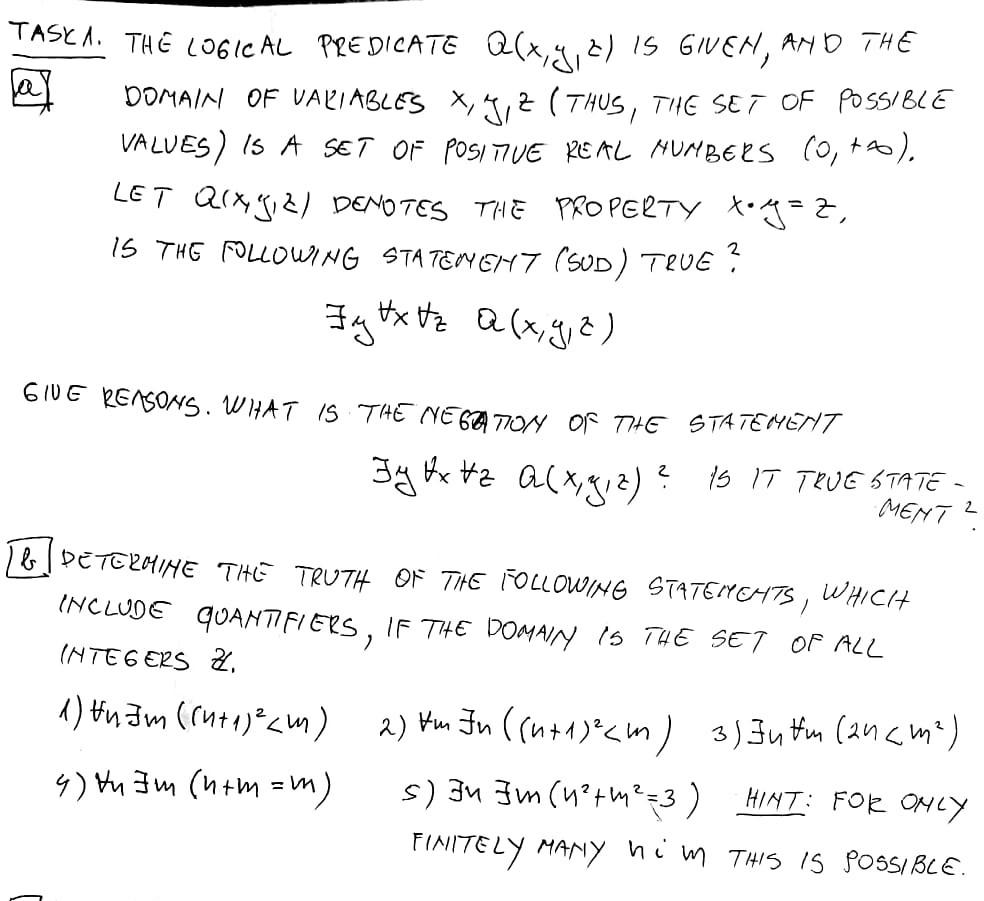 TASK 1. THE LOGICAL PREDICATE Q(x,y,z) IS GIVEN, AND THE
a) DOMAIN OF VARIABLES x,y,z (THUS, THE SET OF POSSIBLE
VALUES) IS A SET OF POSITIVE REAL NUMBERS (0,+∞).
LET Q(x,y,z) DENOTES THE PROPERTY x·y=z,
IS THE FOLLOWING STATEMENT (SUD) TRUE?
∃y ∀x ∀z Q(x,y,z)
GIVE REASONS. WHAT IS THE NEGATION OF THE STATEMENT
∃y ∀x ∀z Q(x,y,z)? IS IT TRUE STATE-
MENT?
b) DETERMINE THE TRUTH OF THE FOLLOWING STATEMENTS, WHICH
INCLUDE QUANTIFIERS, IF THE DOMAIN IS THE SET OF ALL
INTEGERS ℤ.
1) ∀n∃m ((n+1)²<m) 2) ∀m ∃n ((n+1)²<m) 3) ∃n ∀m (2n<m²)
4) ∀n ∃m (n+m=m) 5) ∃n ∃m (n²+m²=3) HINT: FOR ONLY
FINITELY MANY n i m THIS IS POSSIBLE.